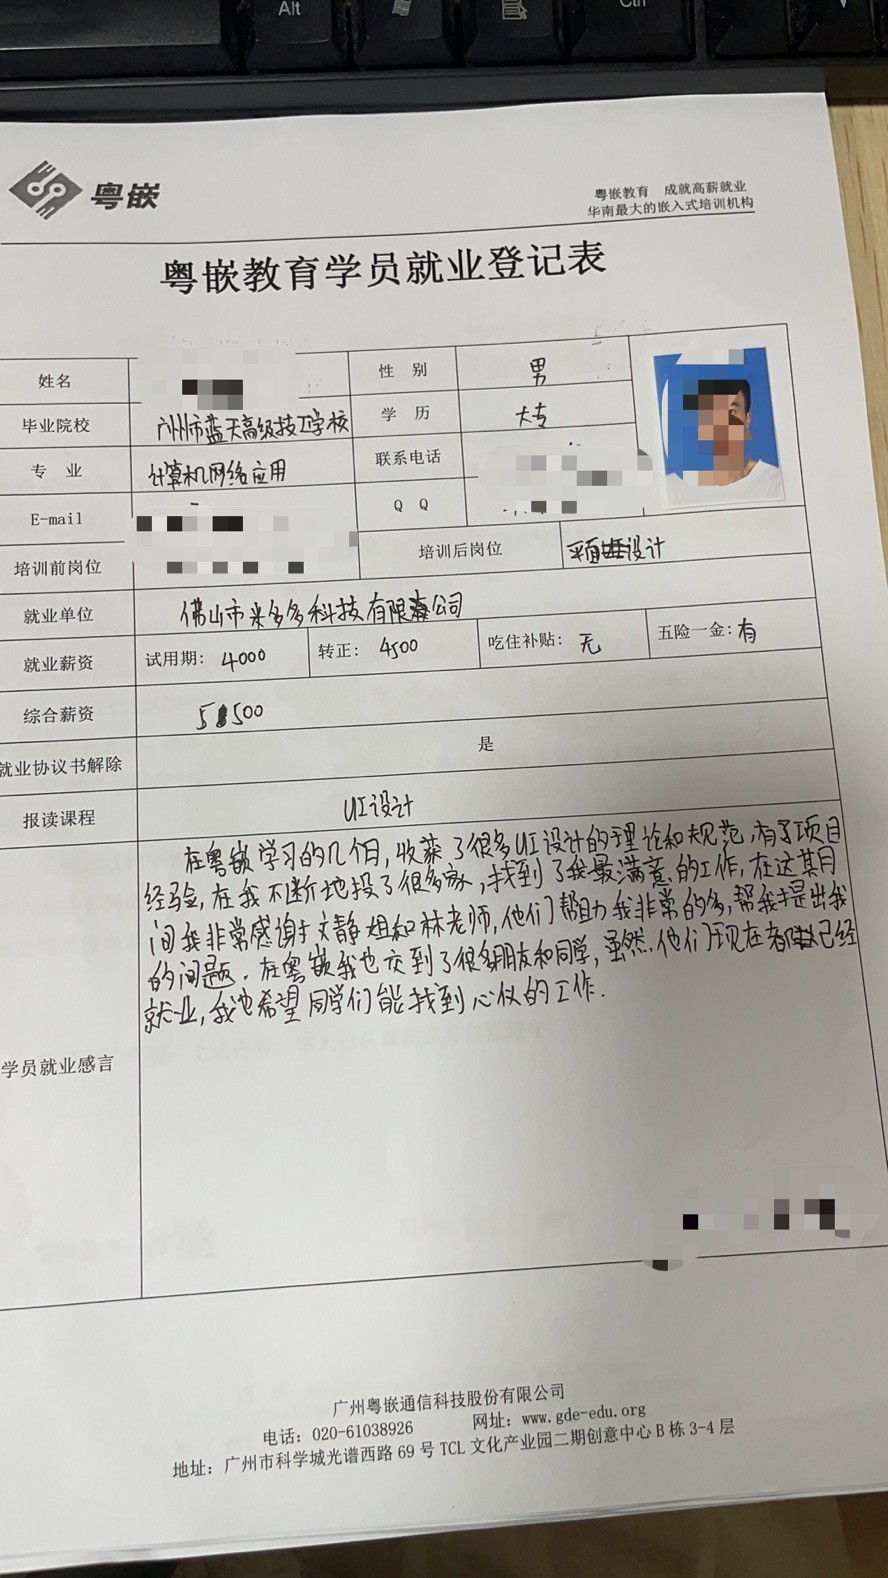 Alt
Ctrl
粤嵌
粤嵌教育 成就高薪就业
华南最大的嵌入式培训机构
粤嵌教育学员就业登记表
姓名 性 别 男
毕业院校 广州市蓝天高级技工学校 学 历 大专
专 业 计算机网络应用 联系电话
E-mail Q Q
培训前岗位 培训后岗位 平面设计
就业单位 佛山市米多多科技有限公司
就业薪资 试用期: 4000 转正: 4500 吃住补贴: 无 五险一金: 有
综合薪资 5500
就业协议书解除 是
报读课程 UI设计
在粤嵌学习的几个月,收获了很多UI设计的理论和规范,有了项目
经验,在我不断地投了很多家,找到了我最满意的工作,在这其月
间我非常感谢于文静姐和林老师,他们帮助我非常的多,帮我提出我
的问题.在粤嵌我也交到了很多朋友和同学,虽然.他们现在都已经
就业,我也希望同学们能找到心仪的工作.
学员就业感言
广州粤嵌通信科技股份有限公司
电话: 020-61038926 网址: www.gde-edu.org
地址: 广州市科学城光谱西路 69 号 TCL 文化产业园二期创意中心 B 栋 3-4 层